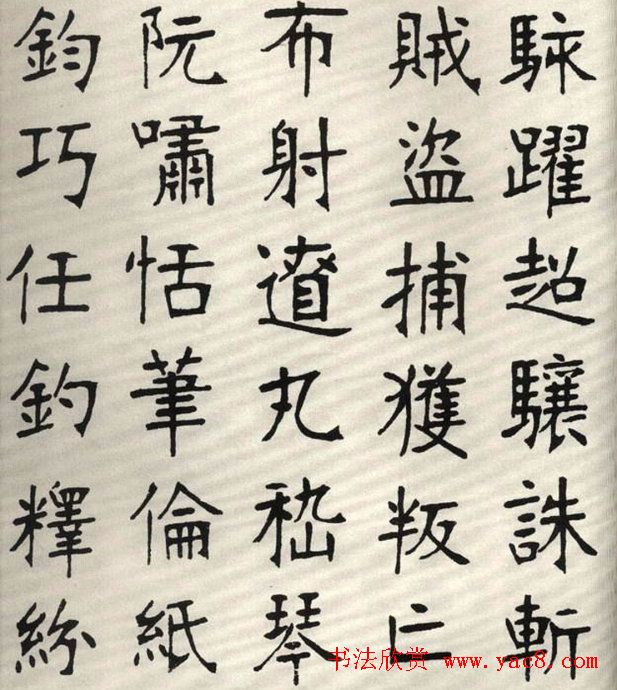 駭躍超驤誅斬
賊盜捕獲叛亡
布射遼丸嵇琴
阮嘯恬筆倫紙
鈞巧任釣釋紛
书法欣赏 www.yac8.com